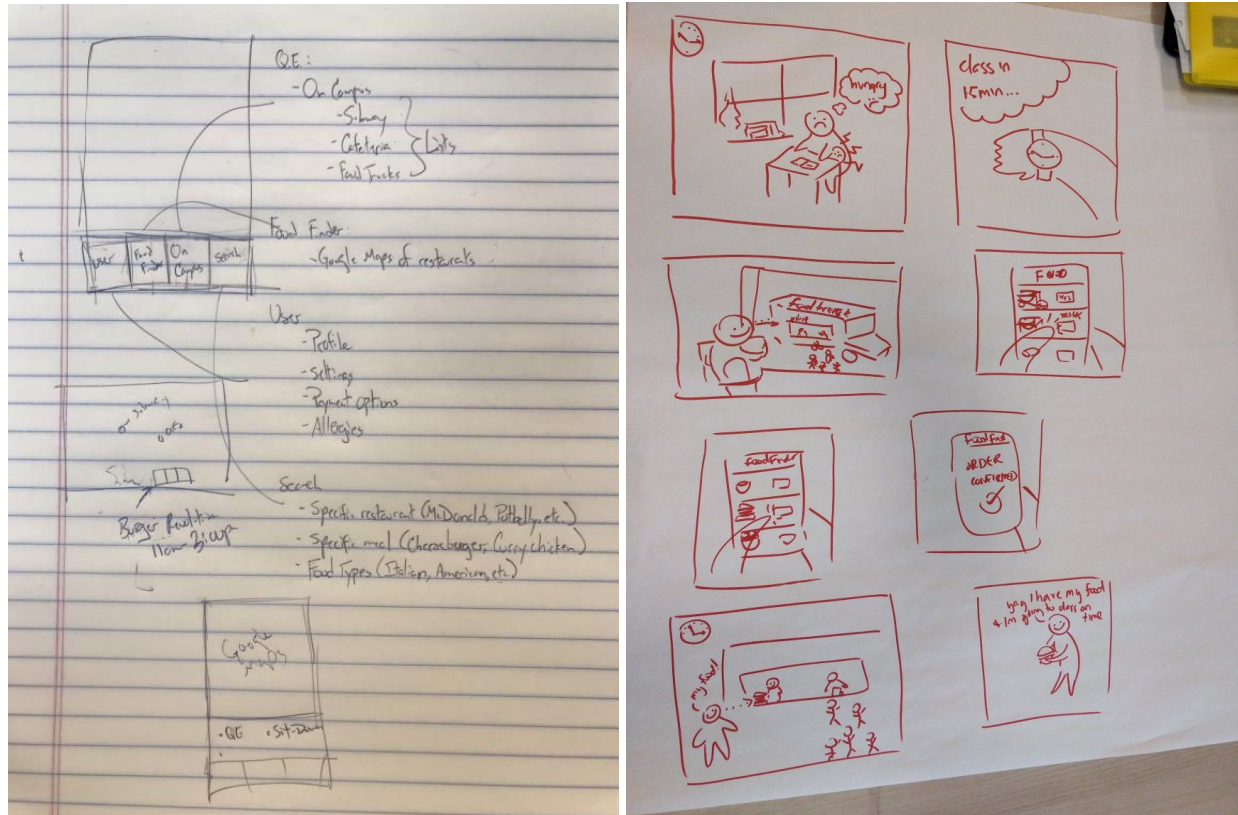 QE:
- On Campus
- Subway
- Cafeteria
- Food Trucks
Lists
Food Finder
- Google Maps of restaurants
User
Food Finder
On Campus
Search
User
- Profile
- Settings
- Payment options
- Allergies
Subway
Search
- Specific restaurant (McDonalds, Potbelly, etc.)
- Specific meal (Cheeseburger, Curry chicken)
- Food Types (Italian, American, etc.)
Burger
Google
Maps
• QE • Sit-Down
hungry
class in
15 min...
food truck
FOOD
YES
foodfinder
ORDER
CONFIRMED
my food!
yay I have my food
& I'm going to class on
time